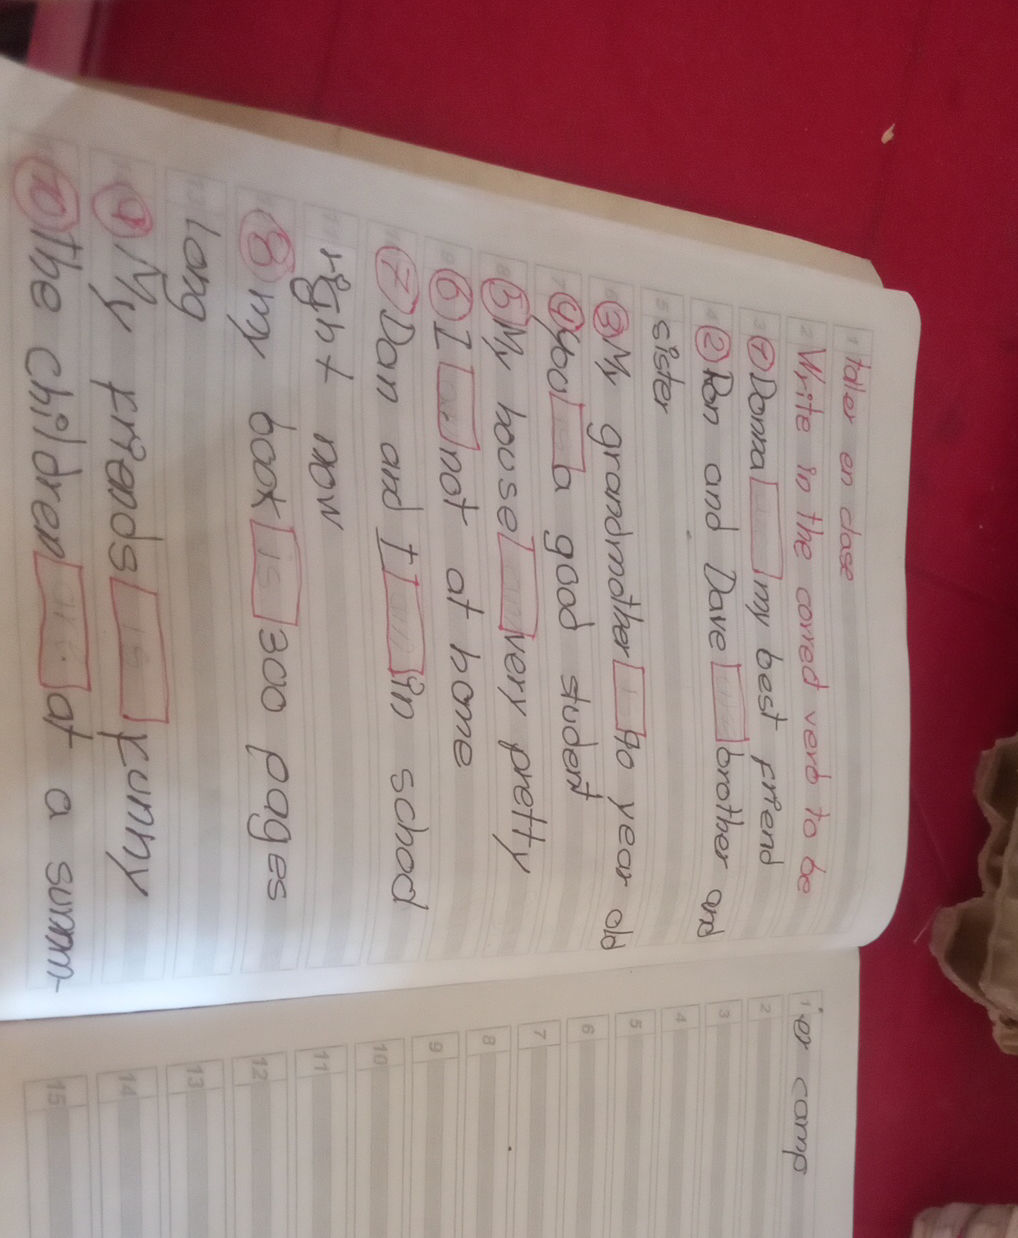 taller en clase
Write in the corred verb to be
1 Donna my best friend
2 Ron and Dave brother and
sister
3 My grandmother 90 year old
4 you a good student
5 My house very pretty
6 I not at home
7 Dan and I in school
right now
8 my book is 300 pages
long
9 My friends is funny
10 the children are at a summ-
er camp
1
2
3
4
5
6
7
8
9
10
11
12
13
14
15